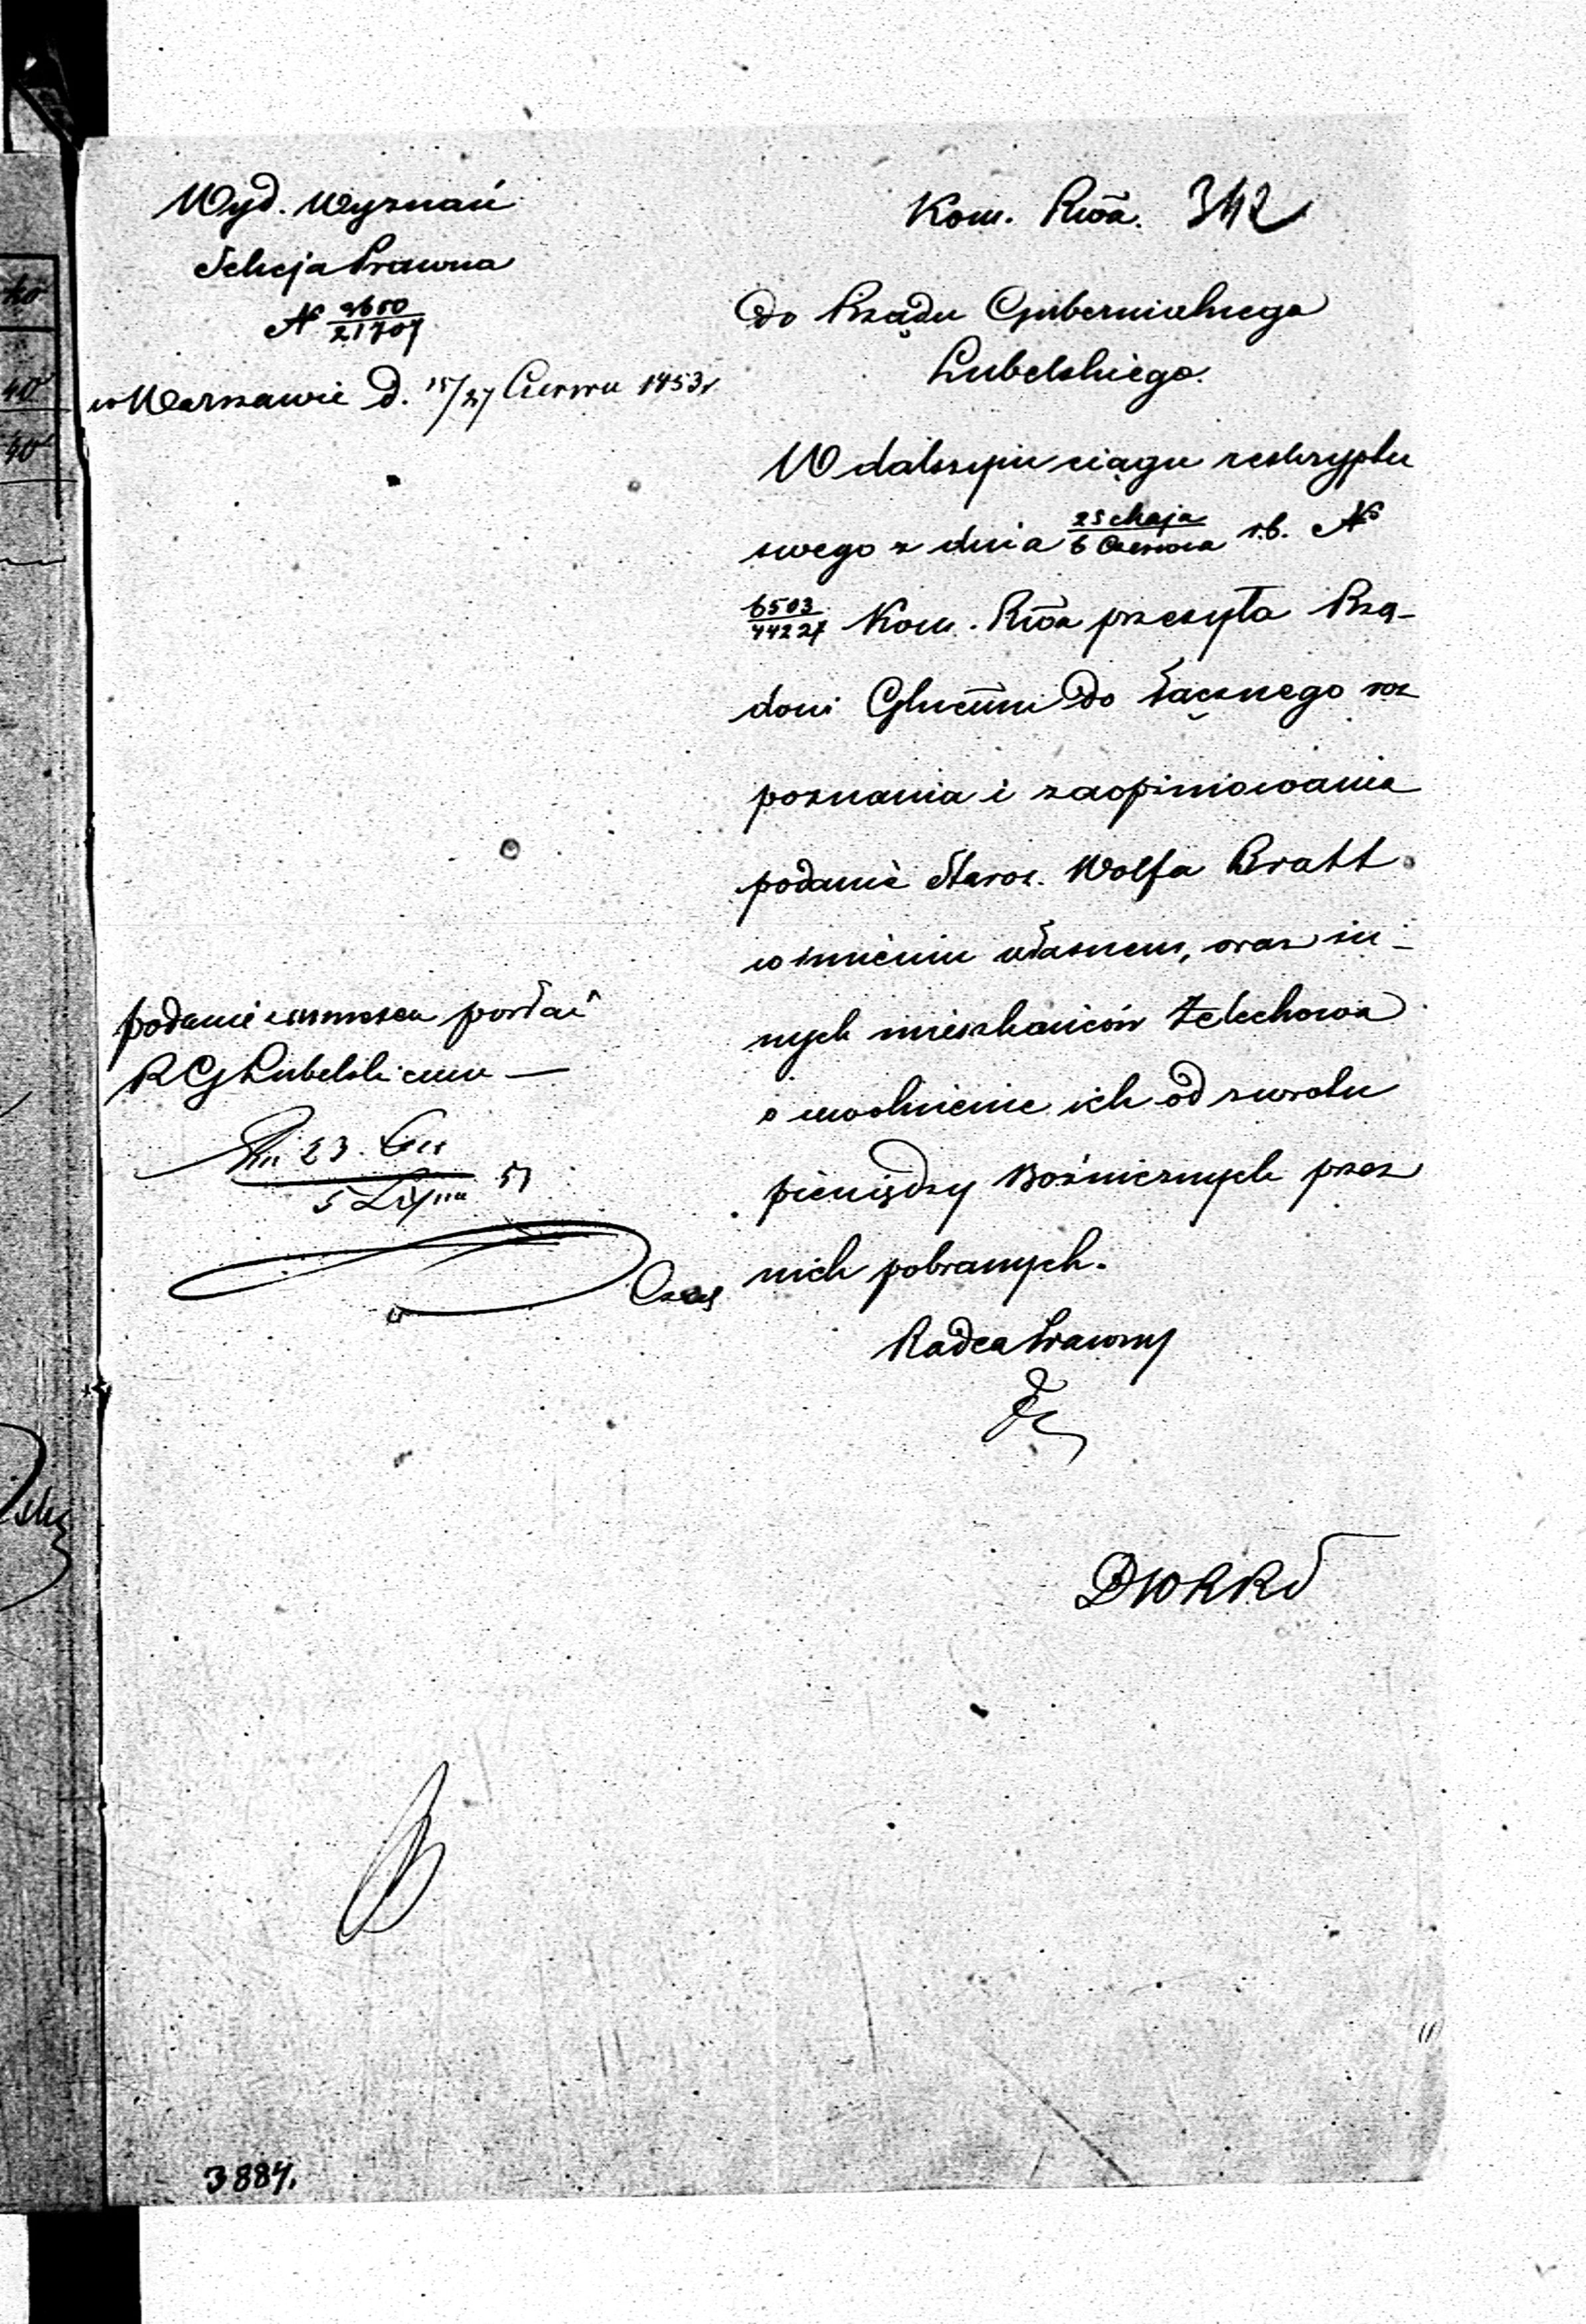 Wyd. Wyznań
Sekcja Prawna
N 2650/21707
w Warszawie d. 15/27 Czerwca 1853 r.
Kom. Rwa. 342
Do Rządu Gubernialnego
Lubelskiego.
W dalszym ciągu reskryptu
swego z dnia 25 Maja/6 Czerwca r.b. N
6503/44227 Kom. Rwa przesyła Rzą-
dowi Glnemu do łącznego roz
poznania i zaopiniowania
podanie Staroz. Wolfa Bratt
w imieniu własnem, oraz in-
nych mieszkańców Żelechowa
o uwolnienie ich od zwrotu
pieniędzy Bóżnicznych przez
nich pobranych.
Radca Prawny
DWRKŚ
podanie posłać
RG Lubelskiemu —
23. Cze
5 Lipca 53
3884.